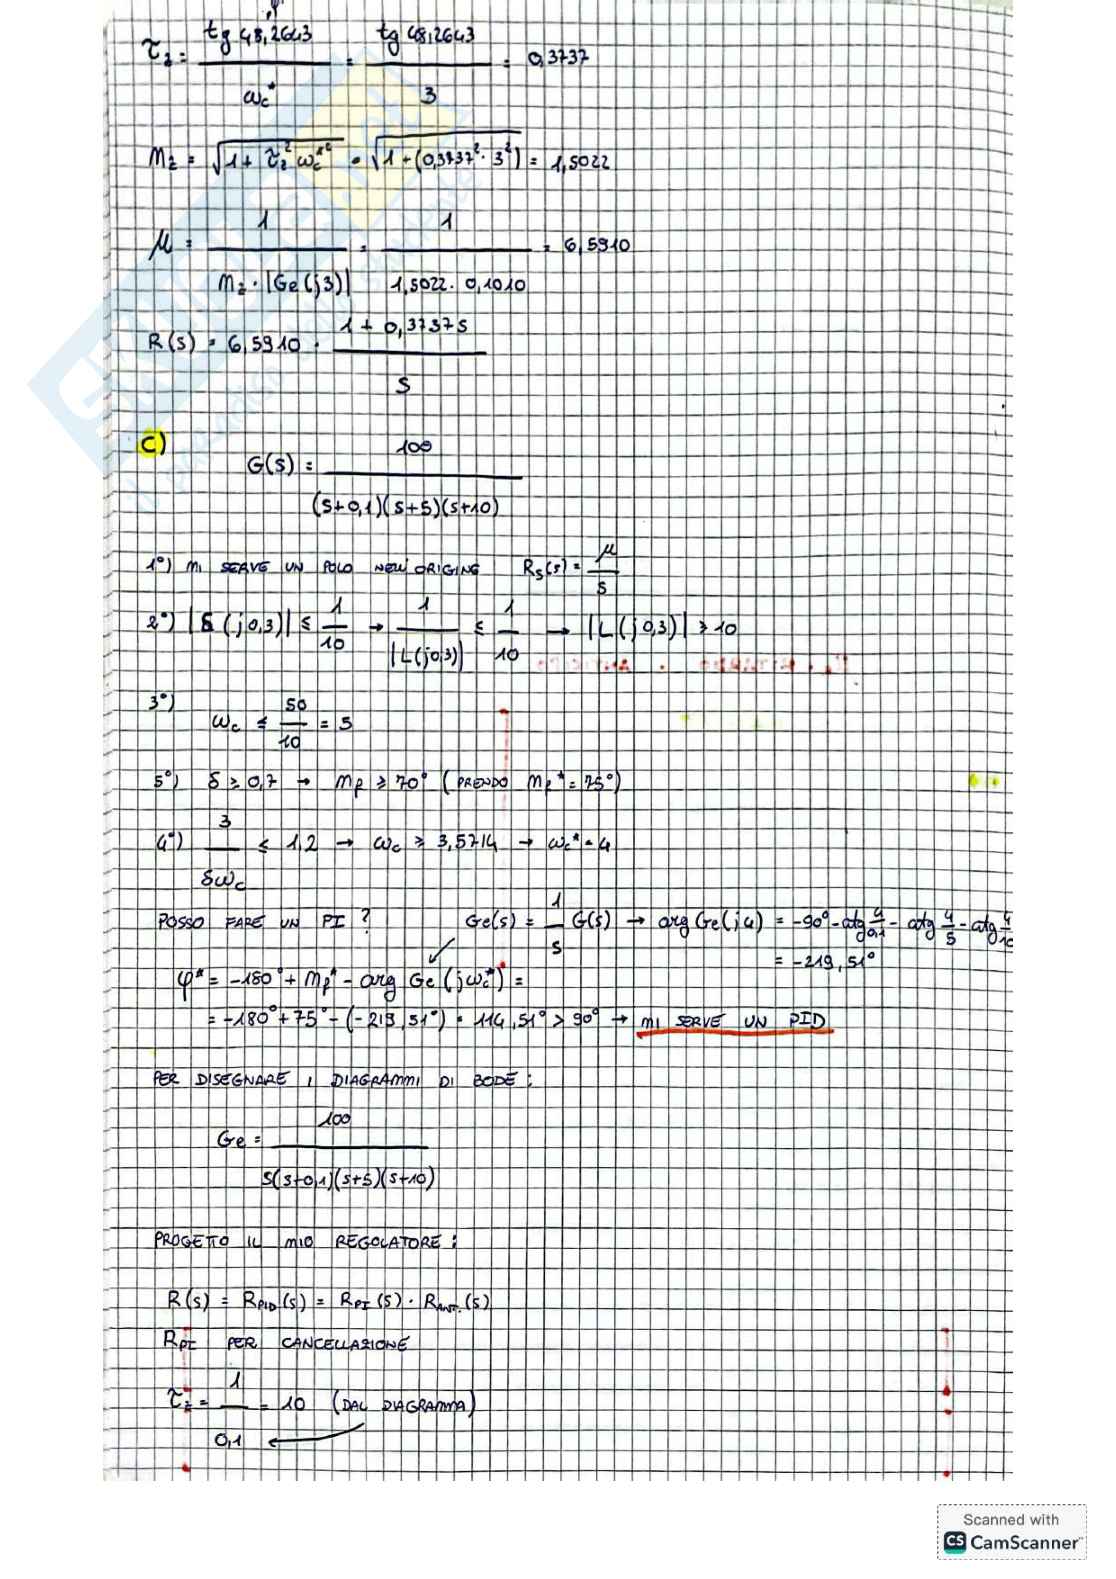 τz = tg 48,2643 / ωc* = tg 48,2643 / 3 = 0,3737
Mz = √(1 + τz² ωc*²) = √(1 + (0,3737² · 3²)) = 1,5022
μ = 1 / (Mz · |Ge(j3)|) = 1 / (1,5022 · 0,1010) = 6,5910
R(s) = 6,5910 · (1 + 0,3737s) / s
C)
G(s) = 100 / ((s+0,1)(s+5)(s+10))
1°) MI SERVE UN POLO NELL'ORIGINE Rs(s) = μ / s
2°) |S(j0,3)| ≤ 1/10 → 1 / |L(j0,3)| ≤ 1/10 → |L(j0,3)| ≥ 10
3°) ωc ≤ 50/10 = 5
5°) δ ≥ 0,7 → Mp ≥ 70° (PRENDO Mp* = 75°)
4°) 3 / δωc ≤ 1,2 → ωc ≥ 3,5714 → ωc* = 4
POSSO FARE UN PI? Ge(s) = 1/s G(s) → arg Ge(j4) = -90° - atg 4/0,1 - atg 4/5 - atg 4/10
= -219,51°
φ* = -180° + Mp* - arg Ge(jωc*) =
= -180° + 75° - (-219,51°) = 114,51° > 90° → MI SERVE UN PID
PER DISEGNARE I DIAGRAMMI DI BODE:
Ge = 100 / (s(s+0,1)(s+5)(s+10))
PROGETTO IL MIO REGOLATORE:
R(s) = RPID(s) = RPI(s) · RANT.(s)
RPI PER CANCELLAZIONE
τz = 1 / 0,1 = 10 (DAL DIAGRAMMA)
Scanned with
CS CamScanner